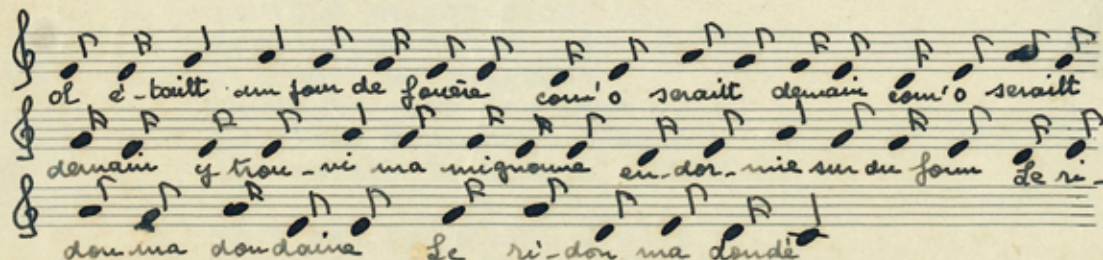 ol é-taitt um jour de fouère coum'o seraitt demain coum'o seraitt
demain y trou-vi ma mignoune en-dor-mie sur du foun Le ri-
don ma dondaine Le ri-don ma dondé